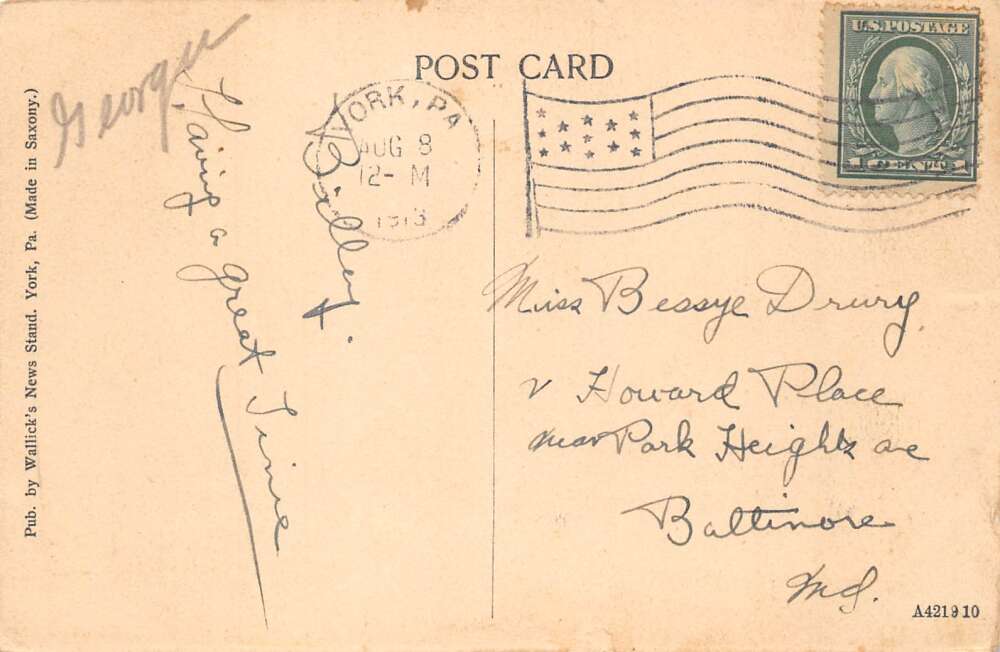 POST CARD
U.S. POSTAGE
1 CENT 1
YORK, PA
AUG 8
12- M
1913
George
Having a great Time
Billy.
Miss Bessye Drury
Howard Place
near Park Heights ave
Baltimore
Md.
Pub. by Wallick's News Stand. York, Pa. (Made in Saxony.)
A421910